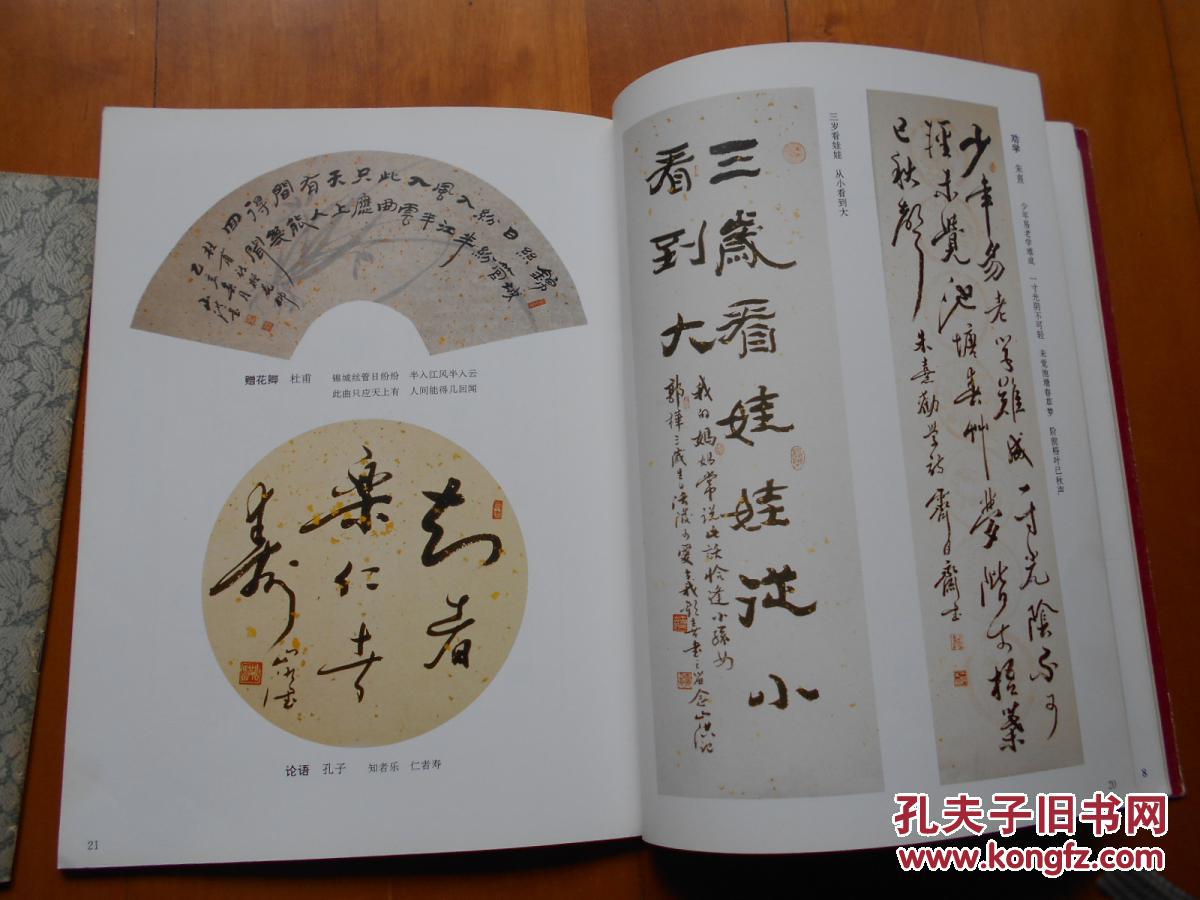 锦城
丝管
日纷
纷半
入江
风半
入云
此曲
只应
天上
有人
间能
得几
回闻
杜甫
赠花卿　杜甫
锦城丝管日纷纷　半入江风半入云
此曲只应天上有　人间能得几回闻
知者
樂仁者
寿
论语　孔子　知者乐　仁者寿
21
三岁看娃娃　从小看到大
三歲看娃娃從小
看到大
我的妈妈常说此话恰逢小孙女
劝学　朱熹　少年易老学难成　一寸光阴不可轻　未觉池塘春草梦　阶前梧叶已秋声
少年易老学难成一寸光陰不可
輕未覺池塘春艸夢階前梧葉
已秋聲
朱熹勸学诗
20
8
孔夫子旧书网
www.kongfz.com